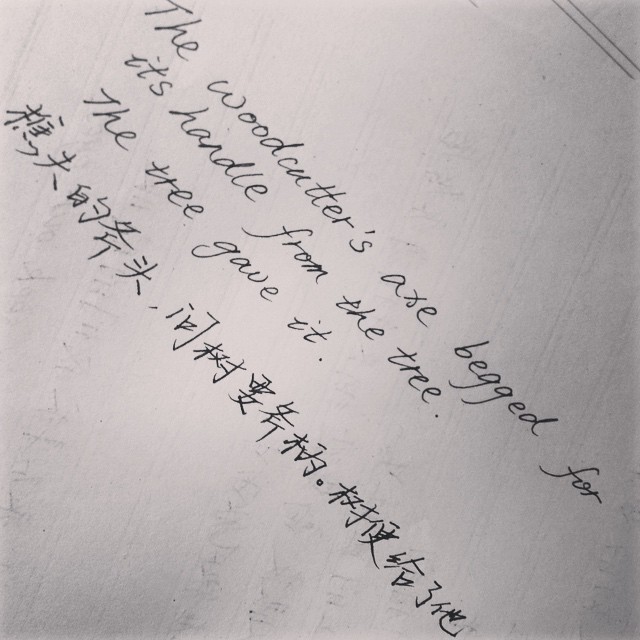 The woodcutter's axe begged for
its handle from the tree.
The tree gave it.
樵夫的斧头，问树要斧柄。树便给了他